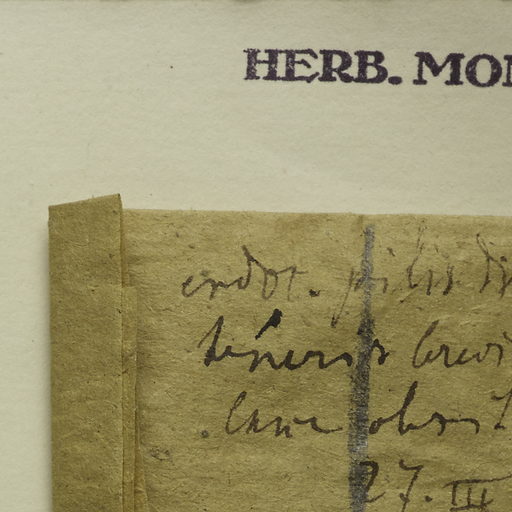 HERB. MON
endot. pilis
teneris brevi
lane obs
27. III